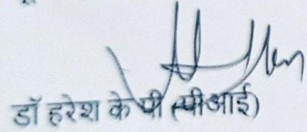 डॉ हरेश के पी (पीआई)